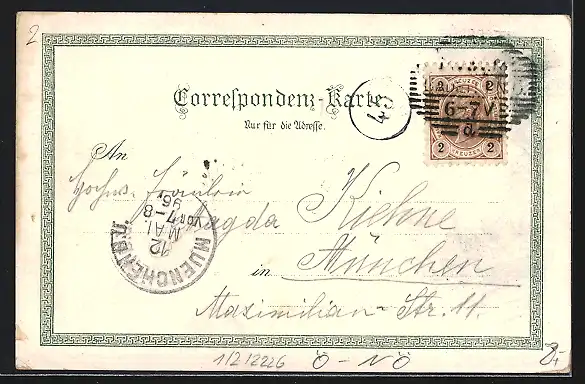 2
Correspondenz-Karte.
Nur für die Adresse.
2 KREUZER 2
6-7 V
d
2 KREUZER 2
An
Fräulein
Magda Kiehne
in München
Maximilian-Str. 11.
MUENCHEN
12
MAI
Vor 7-8
96
1/2/2226 Ö-NÖ